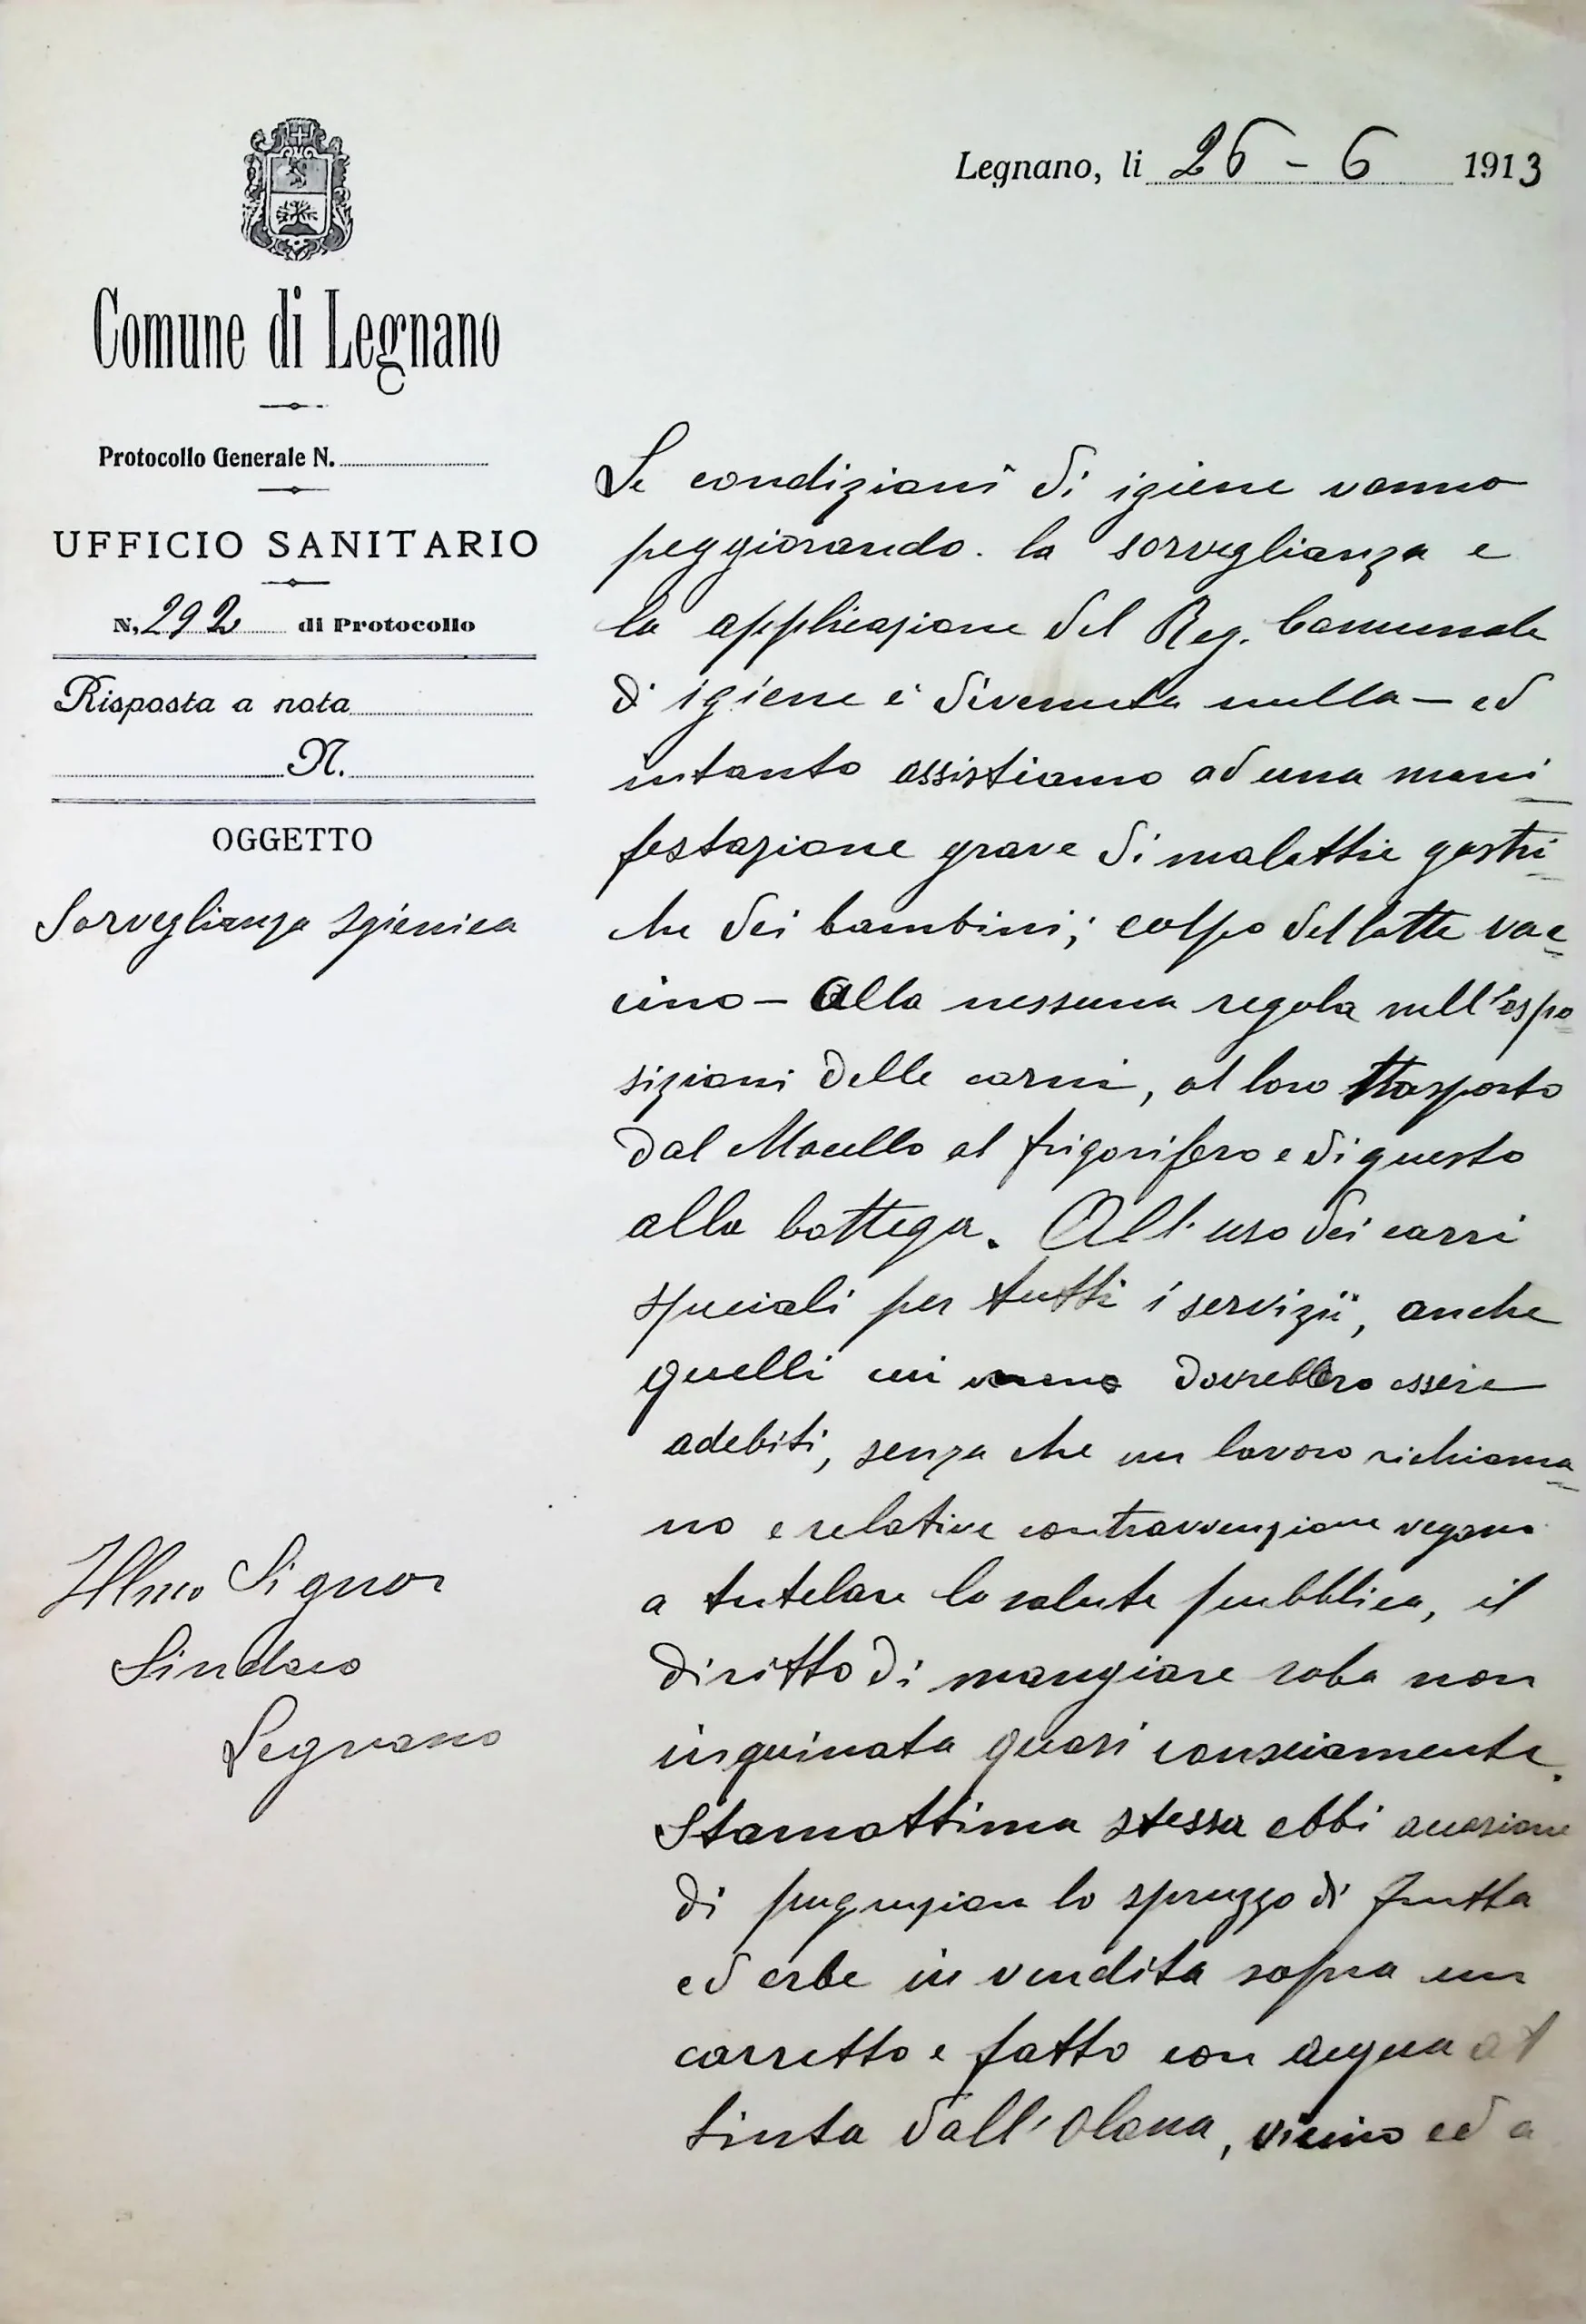 Legnano, li 26 - 6 1913
Comune di Legnano
Protocollo Generale N.
UFFICIO SANITARIO
N. 292 di Protocollo
Risposta a nota
N.
OGGETTO
Sorveglianza Igienica
Illmo Signor
Sindaco
Legnano
Le condizioni di igiene vanno
peggiorando. la sorveglianza e
la applicazione del Reg. Comunale
di igiene è divenuta nulla — ed
intanto assistiamo ad una mani
festazione grave di malattie gastri
che dei bambini; colpo del latte vac
cino — alla nessuna regola nell'espo
sizioni delle carni, al loro trasporto
dal Macello al frigorifero e di questo
alla bottega. All'uso dei carri
speciali per tutti i servizii, anche
quelli cui dovrebbero essere
adebiti, senza che un lavoro richiama
no e relative contravvenzione vegano
a tutelare la salute pubblica, il
diritto di mangiare roba non
inquinata quasi consciamente.
Stamattina stessa ebbi occasione
di lo spruzzo di frutta
ed erbe in vendita sopra un
carretto e fatto con acqua at
tinta dall'Olona, vicino ed a